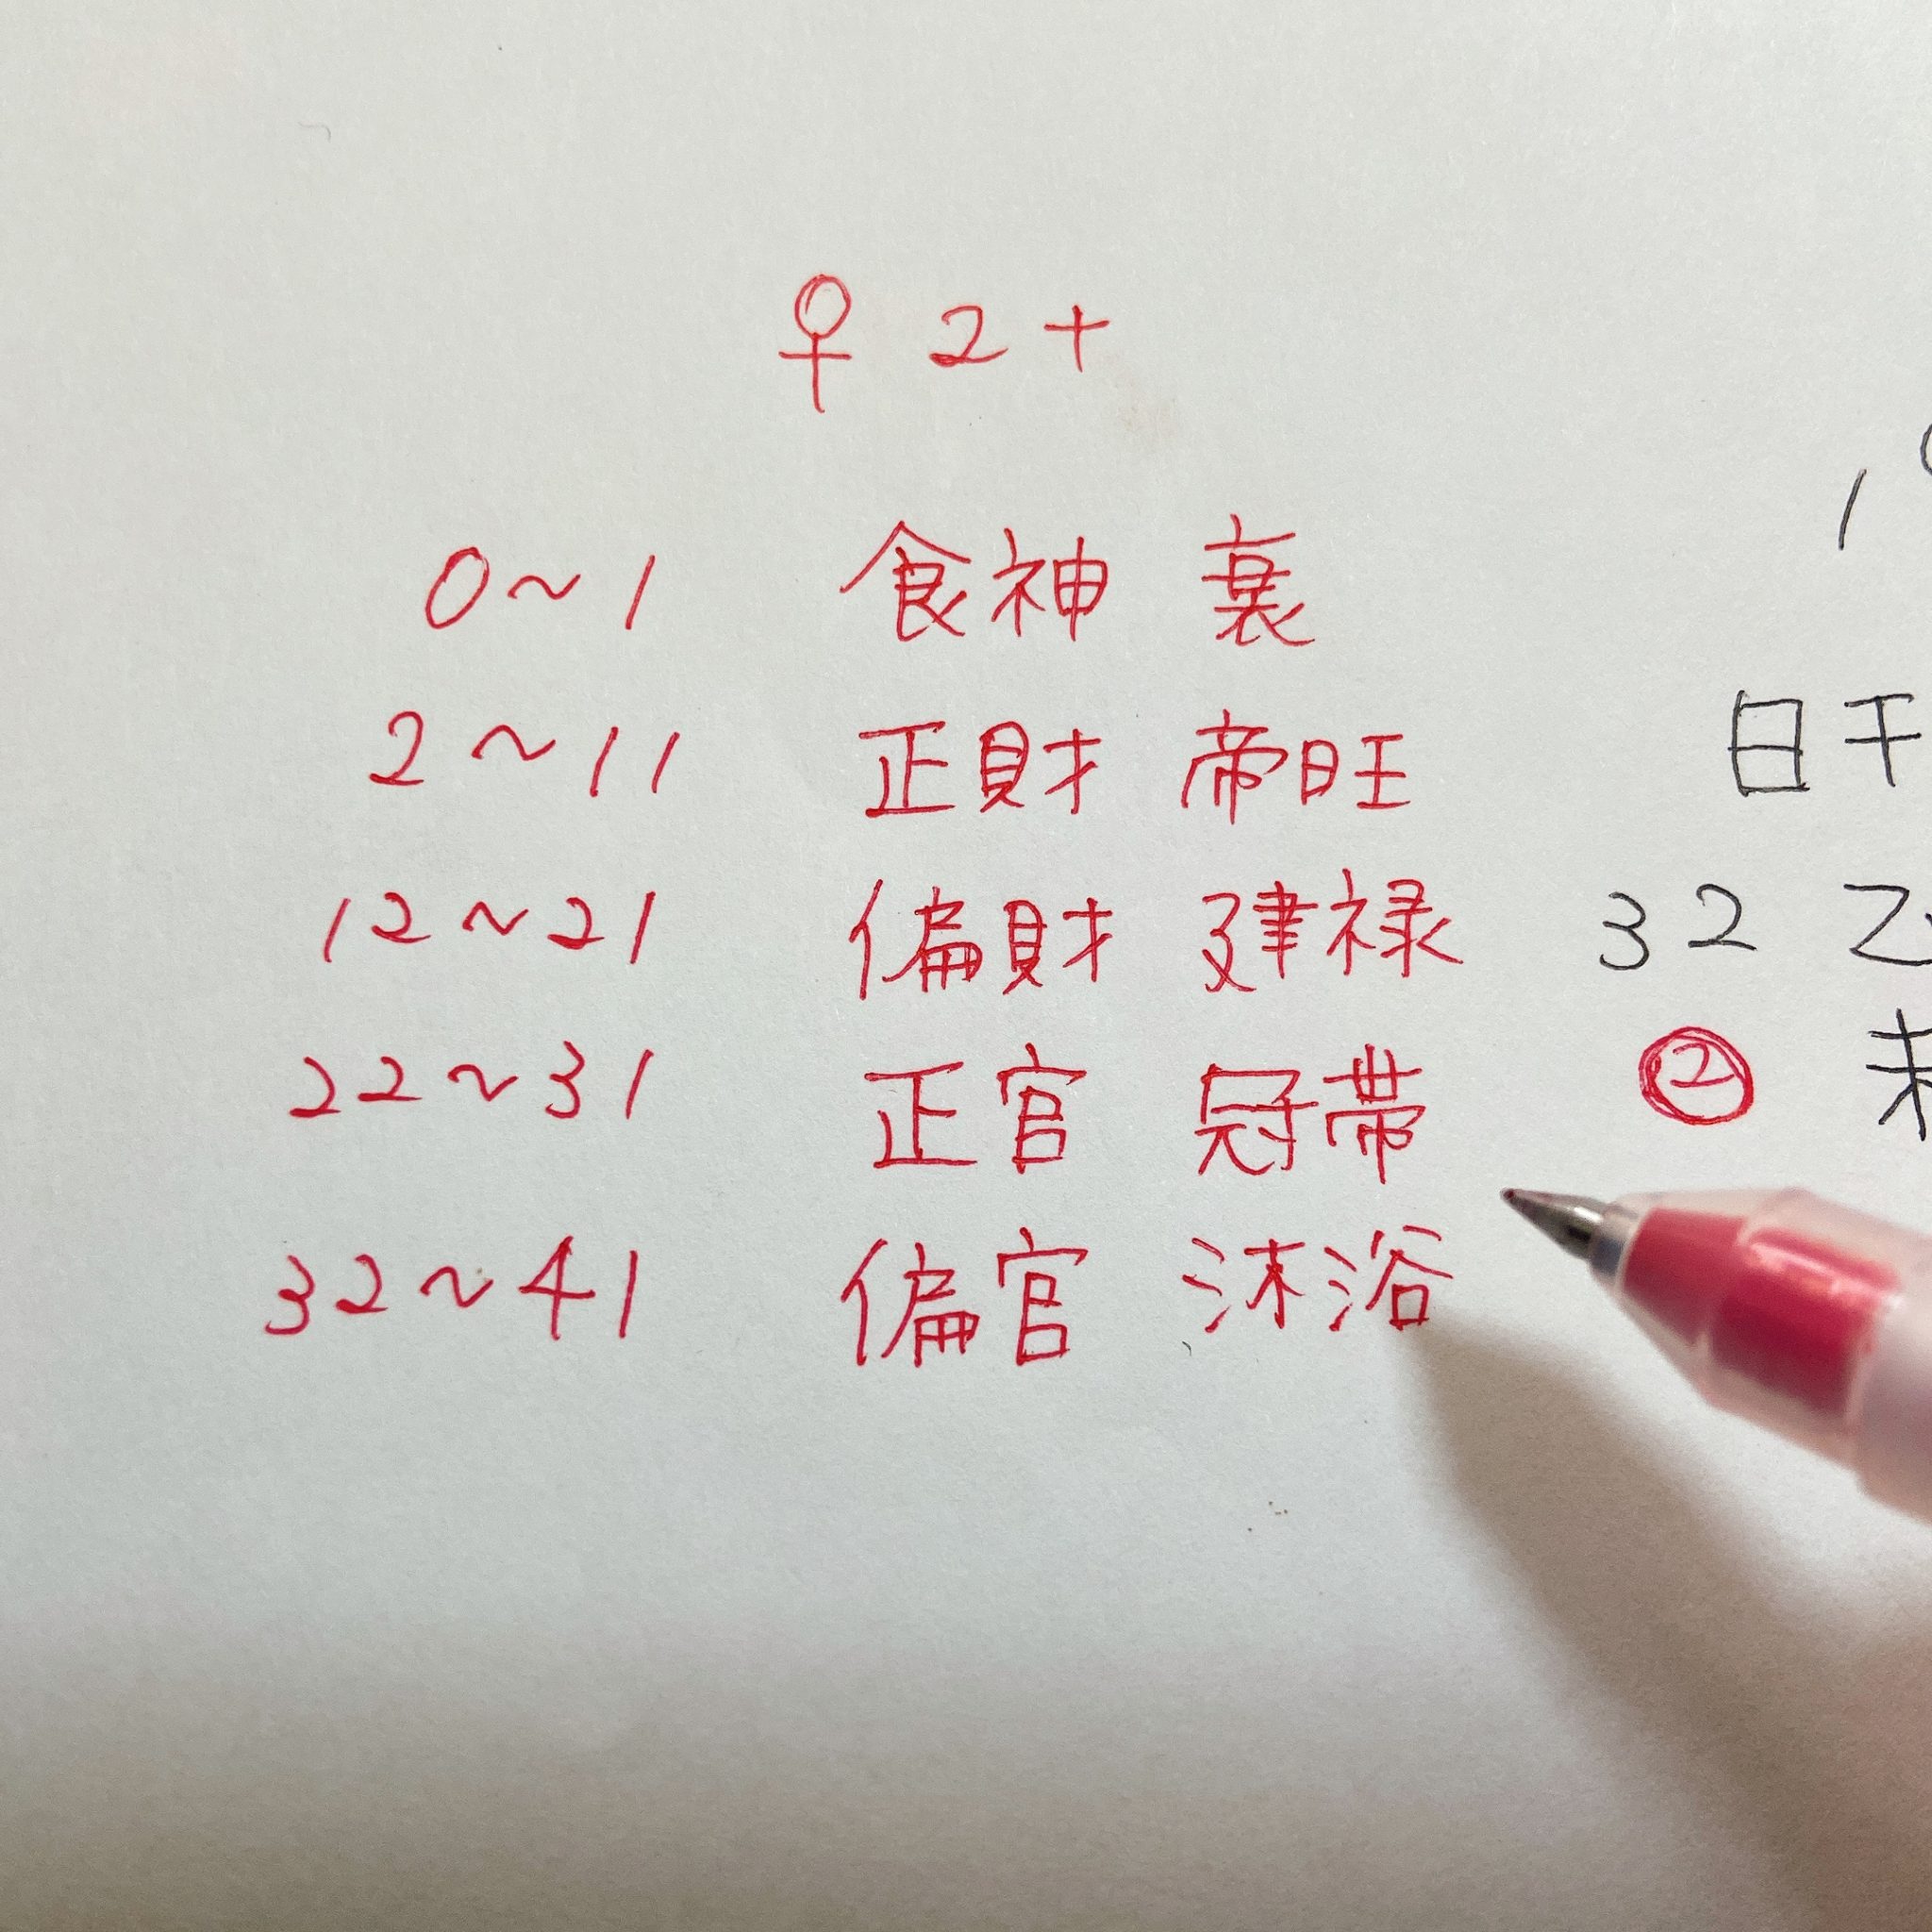 ♀ 2+
0~1 食神 衰
2~11 正財 帝旺
12~21 偏財 建禄
22~31 正官 冠帯
32~41 偏官 沐浴
1
日干
32 乙
②